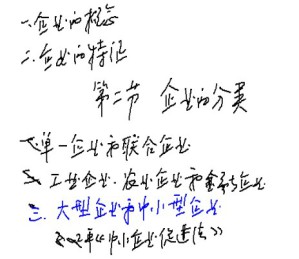 一、企业的概念
二、企业的特征
第二节 企业的分类
一、单一企业和联合企业
二、工业企业、农业企业和金融企业
三、大型企业和中小型企业
2002年《中小企业促进法》